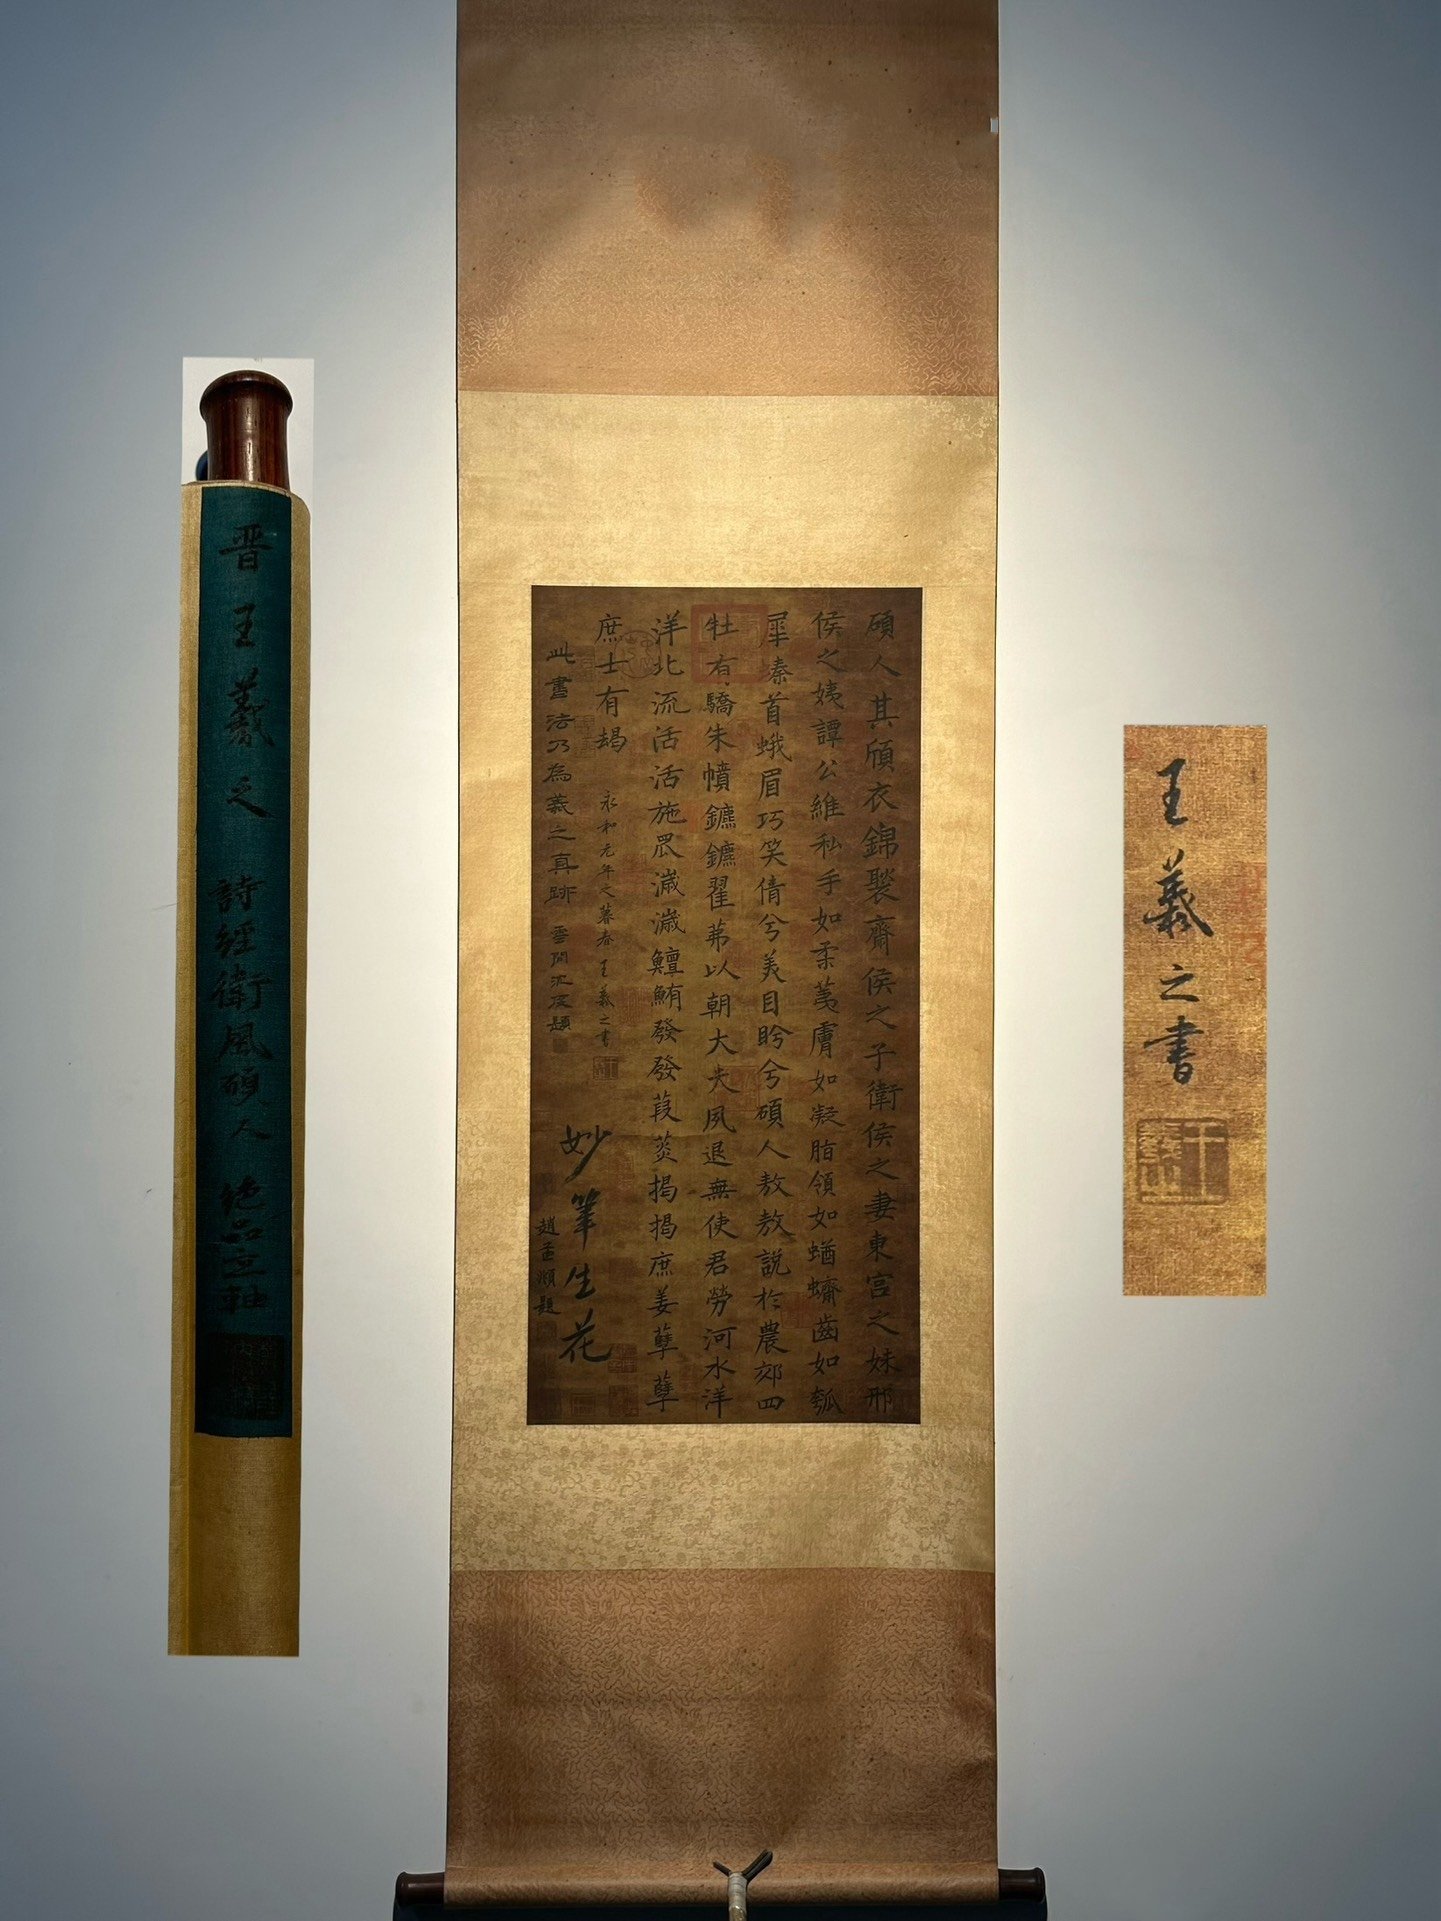 碩人其頎衣錦褧齋侯之子衛侯之妻東宮之妹邢
侯之姨譚公維私手如柔荑膚如凝脂領如蝤蠐齒如瓠
犀螓首蛾眉巧笑倩兮美目盼兮碩人敖敖說於農郊四
牡有驕朱幩鑣鑣翟茀以朝大夫夙退無使君勞河水洋
洋北流活活施罛濊濊鱣鮪發發葭菼揭揭庶姜孽孽
庶士有朅
永和元年之暮春 王羲之書
此書法乃為羲之真跡 雲間沈度題
妙筆生花
趙孟頫題
晋王羲之 詩經衛風碩人 絕品立軸
王羲之書